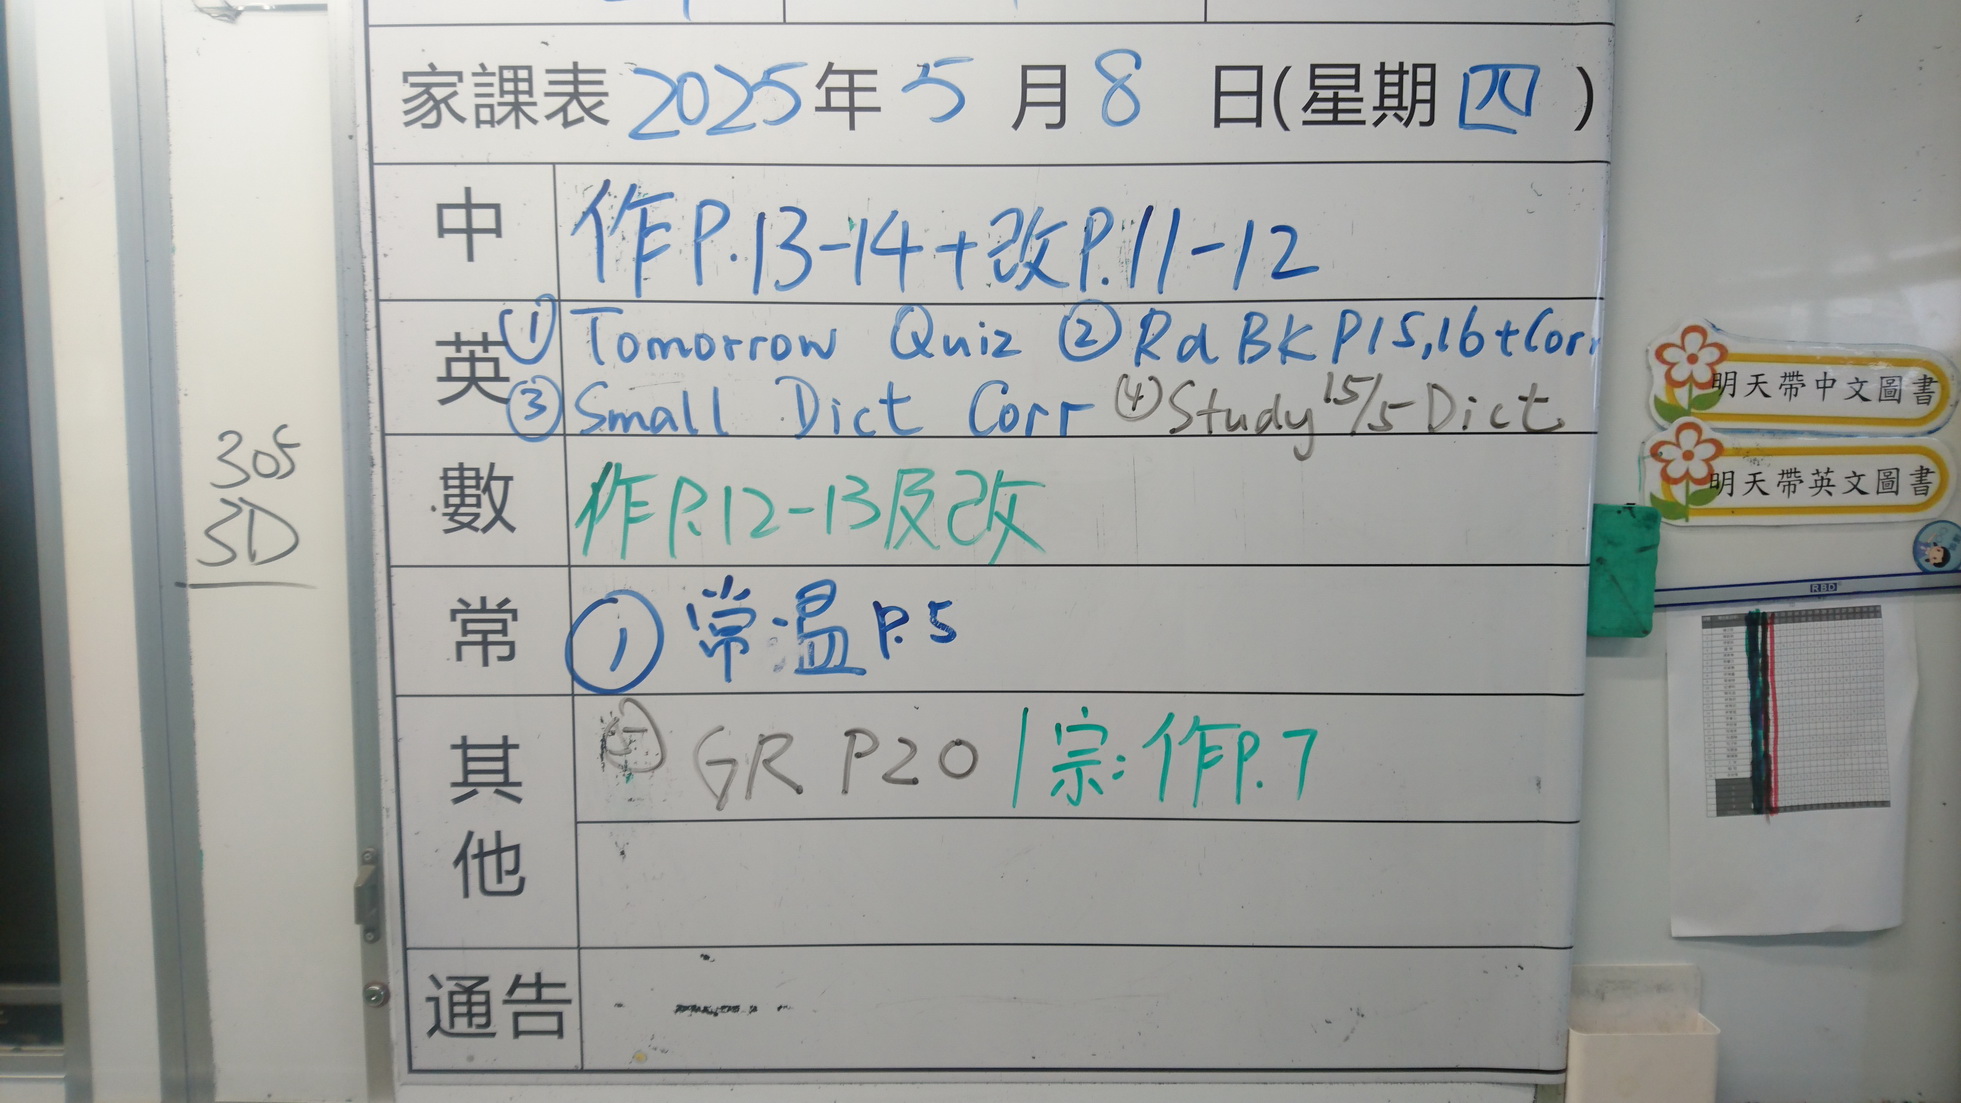 家課表 2025年 5 月 8 日(星期 四 )
中 作P.13-14+改P.11-12
英 ① Tomorrow Quiz ② Rd BK P15,16+Corr
③ Small Dict Corr ④ Study 15/5 Dict
數 作P.12-13及改
常 ① 常溫 P.5
其他 GR P20 / 宗:作P.7
通告
305
3D
明天帶中文圖書
明天帶英文圖書
RBD